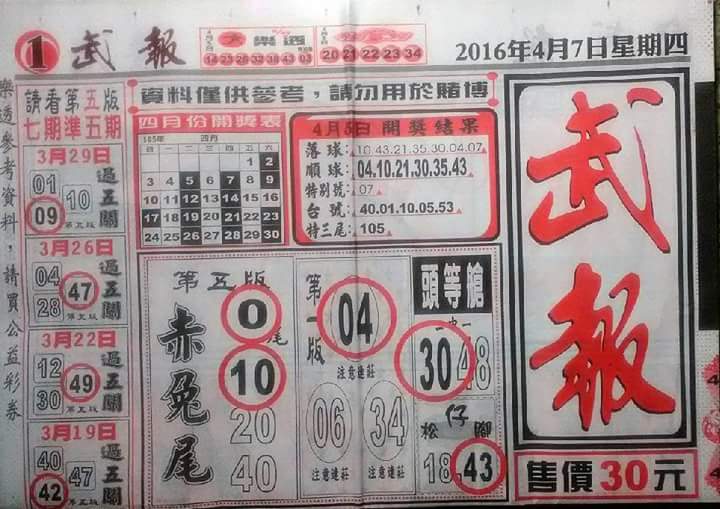 1 武報
大樂透
14 23 26 32 38 43 03
20 21 22 23 34
2016年4月7日星期四
樂透參考資料，請買公益彩券
請看第五版
七期準五期
3月29日
01
10
09
過五關
第五版
3月26日
04
47
28
過五關
第五版
3月22日
12
49
30
過五關
第五版
3月19日
40
47
42
過五關
第五版
資料僅供參考，請勿用於賭博
四月份開獎表
105年 四月
日 一 二 三 四 五 六
1 2
3 4 5 6 7 8 9
10 11 12 13 14 15 16
17 18 19 20 21 22 23
24 25 26 27 28 29 30
4月5日開獎結果
落球：10.43.21.35.30.04.07
順球：04.10.21.30.35.43
特別號：07
台號：40.01.10.05.53
特三尾：105
第五版
赤兔尾
0尾
10
20
40
第一版
04
注意連莊
06
注意連莊
34
注意連莊
頭等艙
二中一
30 48
松仔腳
18 43
武報
售價30元